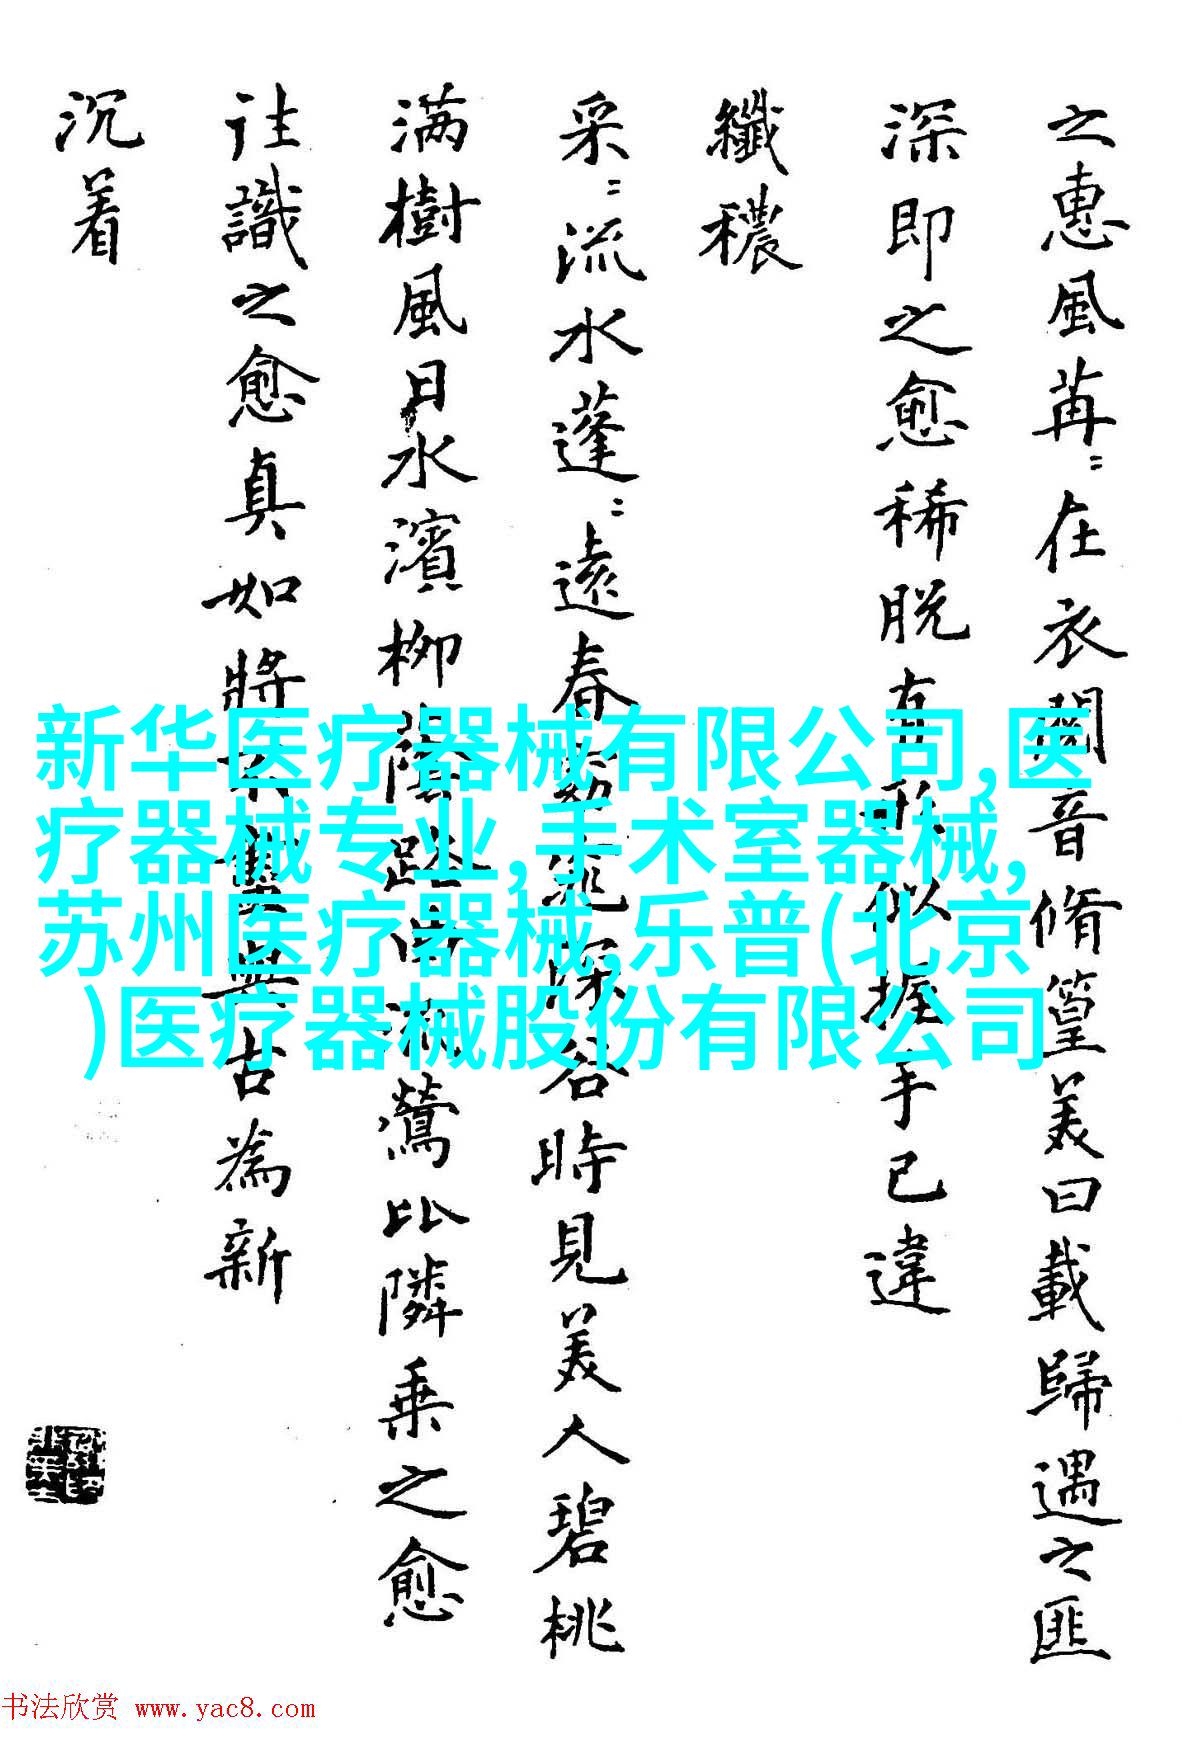 之惠風苒〻在衣閱音脩篁美曰載歸遇之匪
深即之愈稀脫有形似握手已違
纖穠
采〻流水蓬〻遠春窈窕深谷時見美人碧桃
满樹風日水濱柳陰路曲流鶯比隣乗之愈
往識之愈真如將不盡與古為新
沉着
新华医疗器械有限公司,医
疗器械专业,手术室器械,
苏州医疗器械,乐普(北京
)医疗器械股份有限公司
书法欣赏 www.yac8.com